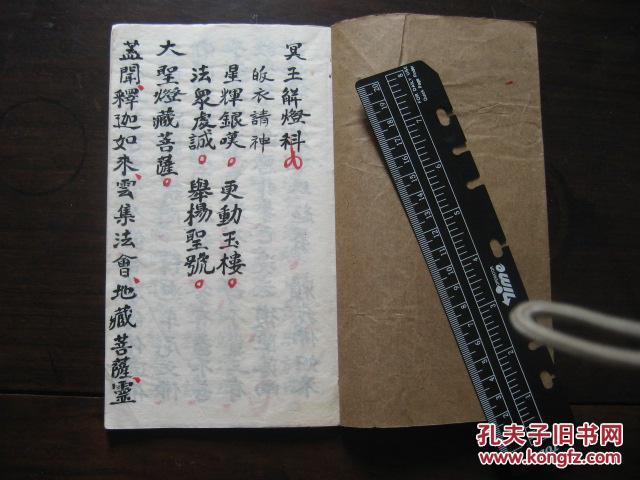 冥王解燈科
皈衣請神
星輝銀嘆。更動玉樓。
法眾虔誠。舉楊聖號。
大聖燈藏菩薩。
蓋聞、釋迦如來、雲集法會、地藏菩薩、靈
孔夫子旧书网
www.kongfz.com